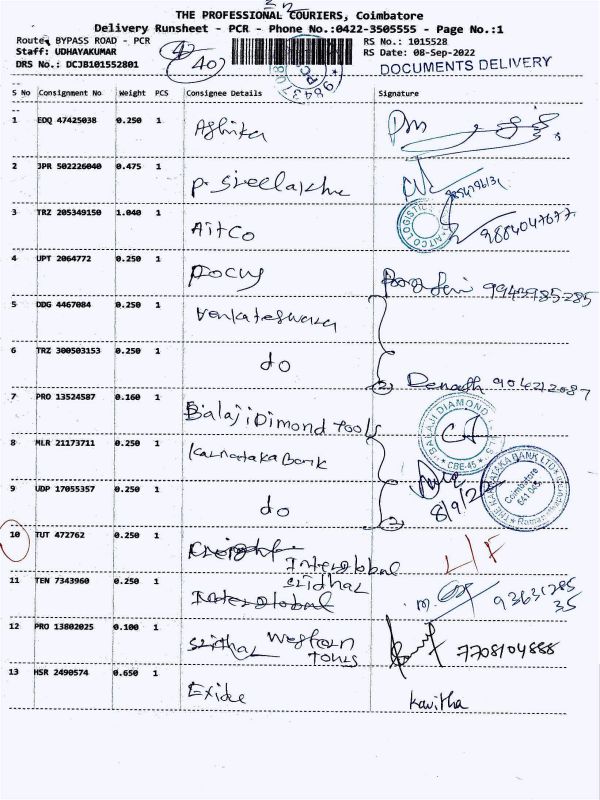 THE PROFESSIONAL COURIERS, Coimbatore
Delivery Runsheet - PCR - Phone No.:0422-3505555 - Page No.:1
Route: BYPASS ROAD - PCR
RS No.: 1015528
Staff: UDHAYAKUMAR
RS Date: 08-Sep-2022
DRS No.: DCJB101552801
DOCUMENTS DELIVERY
40
S No Consignment No Weight PCS Consignee Details Signature
1 EDQ 47425038 0.250 1
2 JPR 502226040 0.475 1
3 TRZ 205349150 1.040 1 Aitco
9884047677
4 UPT 2064772 0.250 1 Pocus
9943985285
5 DDG 4467084 0.250 1 Venkateswara
6 TRZ 300503153 0.250 1 do
7 PRO 13524587 0.160 1 Balaji Dimond Tools
BALAJI DIAMOND TOOLS
CBE-45
8 MLR 21173711 0.250 1 Karnataka Bank
THE KARNATAKA BANK LTD.
Coimbatore
641 045
9 UDP 17055357 0.250 1 do
8/9/22
10 TUT 472762 0.250 1 Interglobal
11 TEN 7343960 0.250 1 Sridhar
Interglobal
12 PRO 13802025 0.100 1 Western Tours
7708104888
13 HSR 2490574 0.650 1 Exide Kavitha